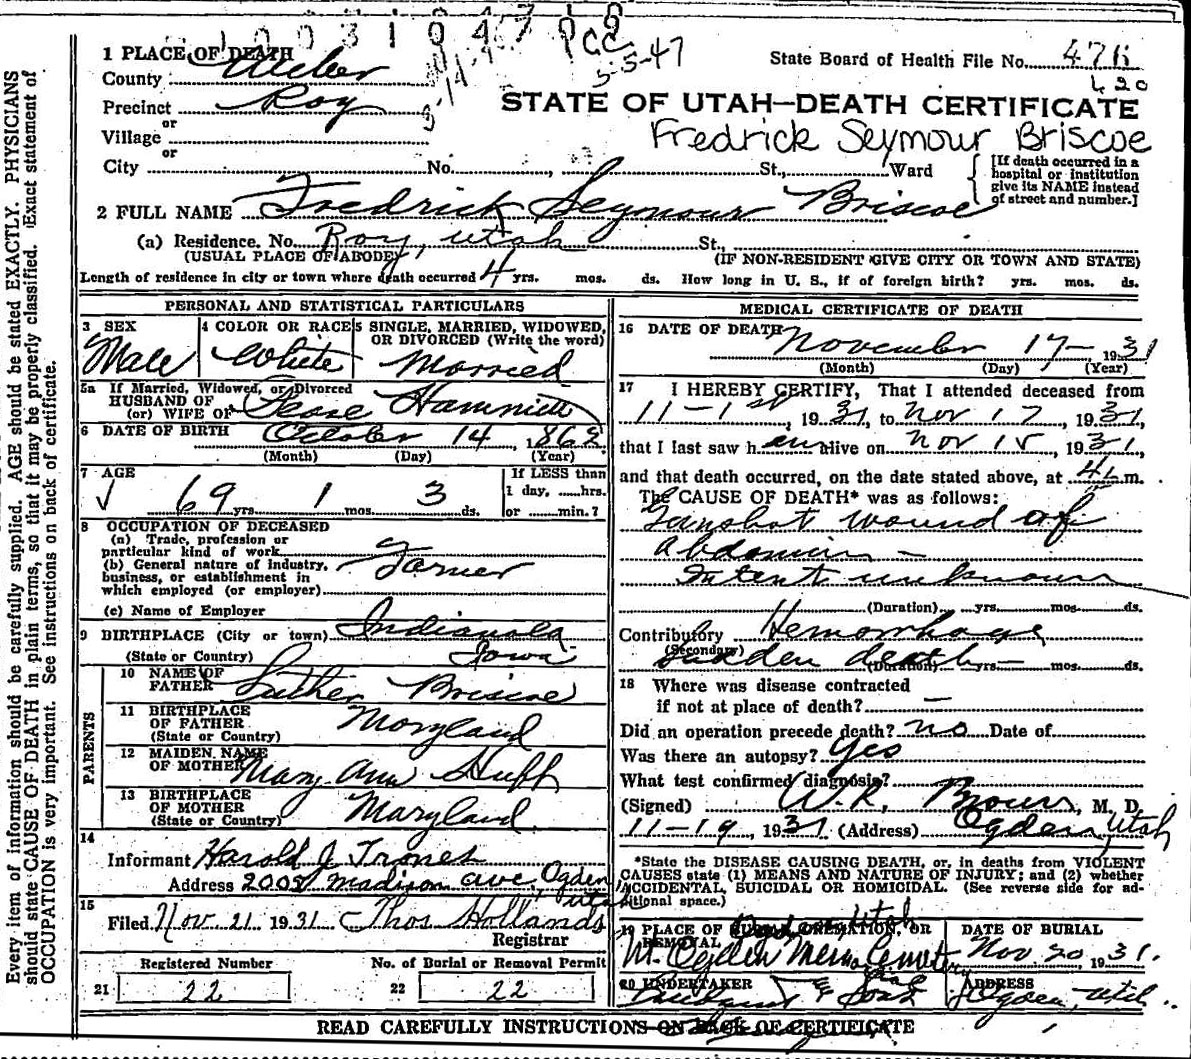 1003104700
CC
5-5-47
1 PLACE OF DEATH
County Weber
State Board of Health File No. 471
420
Precinct Roy
STATE OF UTAH—DEATH CERTIFICATE
or
Village
Fredrick Seymour Briscoe
or
City No. , St., Ward
[If death occurred in a hospital or institution give its NAME instead of street and number.]
2 FULL NAME Fredrick Seymour Briscoe
(a) Residence. No. Roy, Utah St.,
(USUAL PLACE OF ABODE) (IF NON-RESIDENT GIVE CITY OR TOWN AND STATE)
Length of residence in city or town where death occurred 4 yrs. mos. ds. How long in U. S., if of foreign birth? yrs. mos. ds.
PERSONAL AND STATISTICAL PARTICULARS
3 SEX
Male
4 COLOR OR RACE
White
5 SINGLE, MARRIED, WIDOWED, OR DIVORCED (Write the word)
Married
5a If Married, Widowed, or Divorced
HUSBAND OF
(or) WIFE OF
6 DATE OF BIRTH October 14 1862
(Month) (Day) (Year)
7 AGE
69 yrs. 1 mos. 3 ds.
If LESS than
1 day, ......hrs.
or ......min.?
8 OCCUPATION OF DECEASED
(a) Trade, profession or
particular kind of work
(b) General nature of industry,
business, or establishment in
which employed (or employer)
Farmer
(c) Name of Employer
9 BIRTHPLACE (City or town) Indianola
(State or Country) Iowa
PARENTS
10 NAME OF FATHER Luther Briscoe
11 BIRTHPLACE OF FATHER (State or Country) Maryland
12 MAIDEN NAME OF MOTHER Mary Ann Huff
13 BIRTHPLACE OF MOTHER (State or Country) Maryland
14
Informant Harold J
Address 2005 Madison ave, Ogden Utah
15
Filed Nov. 21 1931 Thos Hollands
Registrar
Registered Number No. of Burial or Removal Permit
21 22 22 22
MEDICAL CERTIFICATE OF DEATH
16 DATE OF DEATH November 17— 1931
(Month) (Day) (Year)
17 I HEREBY CERTIFY, That I attended deceased from
11-1st, 1931, to Nov 17, 1931,
that I last saw h alive on Nov 15, 1931,
and that death occurred, on the date stated above, at m.
The CAUSE OF DEATH* was as follows:
Gunshot wound of
Abdomin —
Intent unknown
(Duration) yrs. mos. ds.
Contributory Hemorrhage
(Secondary) Sudden death
(Duration) yrs. mos. ds.
18 Where was disease contracted
if not at place of death? —
Did an operation precede death? no Date of
Was there an autopsy? Yes
What test confirmed diagnosis?
(Signed) W.R. , M. D.
11-19, 1931 (Address) Ogden, Utah
*State the DISEASE CAUSING DEATH, or, in deaths from VIOLENT
CAUSES state (1) MEANS AND NATURE OF INJURY; and (2) whether
ACCIDENTAL, SUICIDAL OR HOMICIDAL. (See reverse side for ad-
ditional space.)
19 PLACE OF BURIAL, CREMATION, OR REMOVAL
Ogden, Utah
Mt. Ogden Mem. Cemetery
DATE OF BURIAL
Nov. 20, 1931.
20 UNDERTAKER
ADDRESS
Ogden, Utah
READ CAREFULLY INSTRUCTIONS ON BACK OF CERTIFICATE
Every item of information should be carefully supplied. AGE should be stated EXACTLY. PHYSICIANS
should state CAUSE OF DEATH in plain terms, so that it may be properly classified. Exact statement of
OCCUPATION is very important. See instructions on back of certificate.